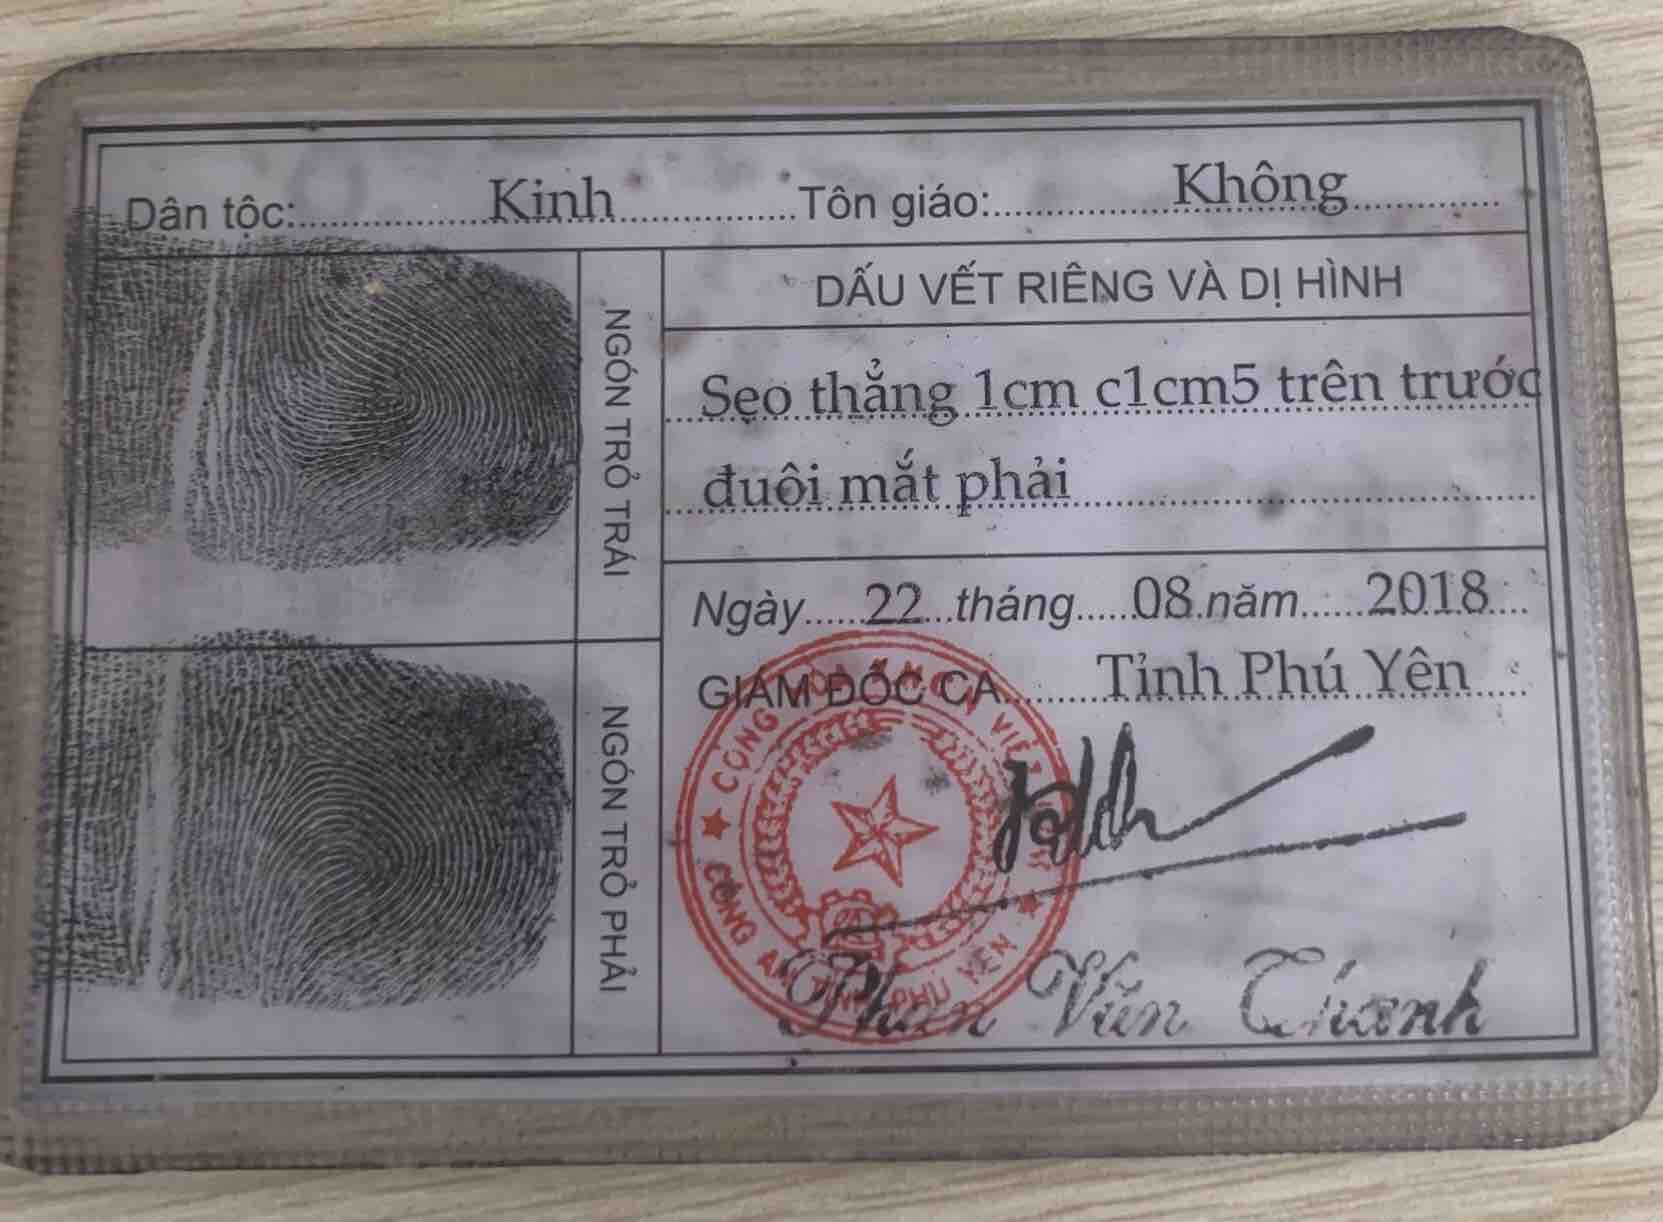 Dân tộc: Kinh Tôn giáo: Không
NGÓN TRỎ TRÁI
NGÓN TRỎ PHẢI
DẤU VẾT RIÊNG VÀ DỊ HÌNH
Sẹo thẳng 1cm c1cm5 trên trước
đuôi mắt phải
Ngày 22 tháng 08 năm 2018
GIÁM ĐỐC CA Tỉnh Phú Yên
CÔNG AN TỈNH PHÚ YÊN
Phan Văn Thanh